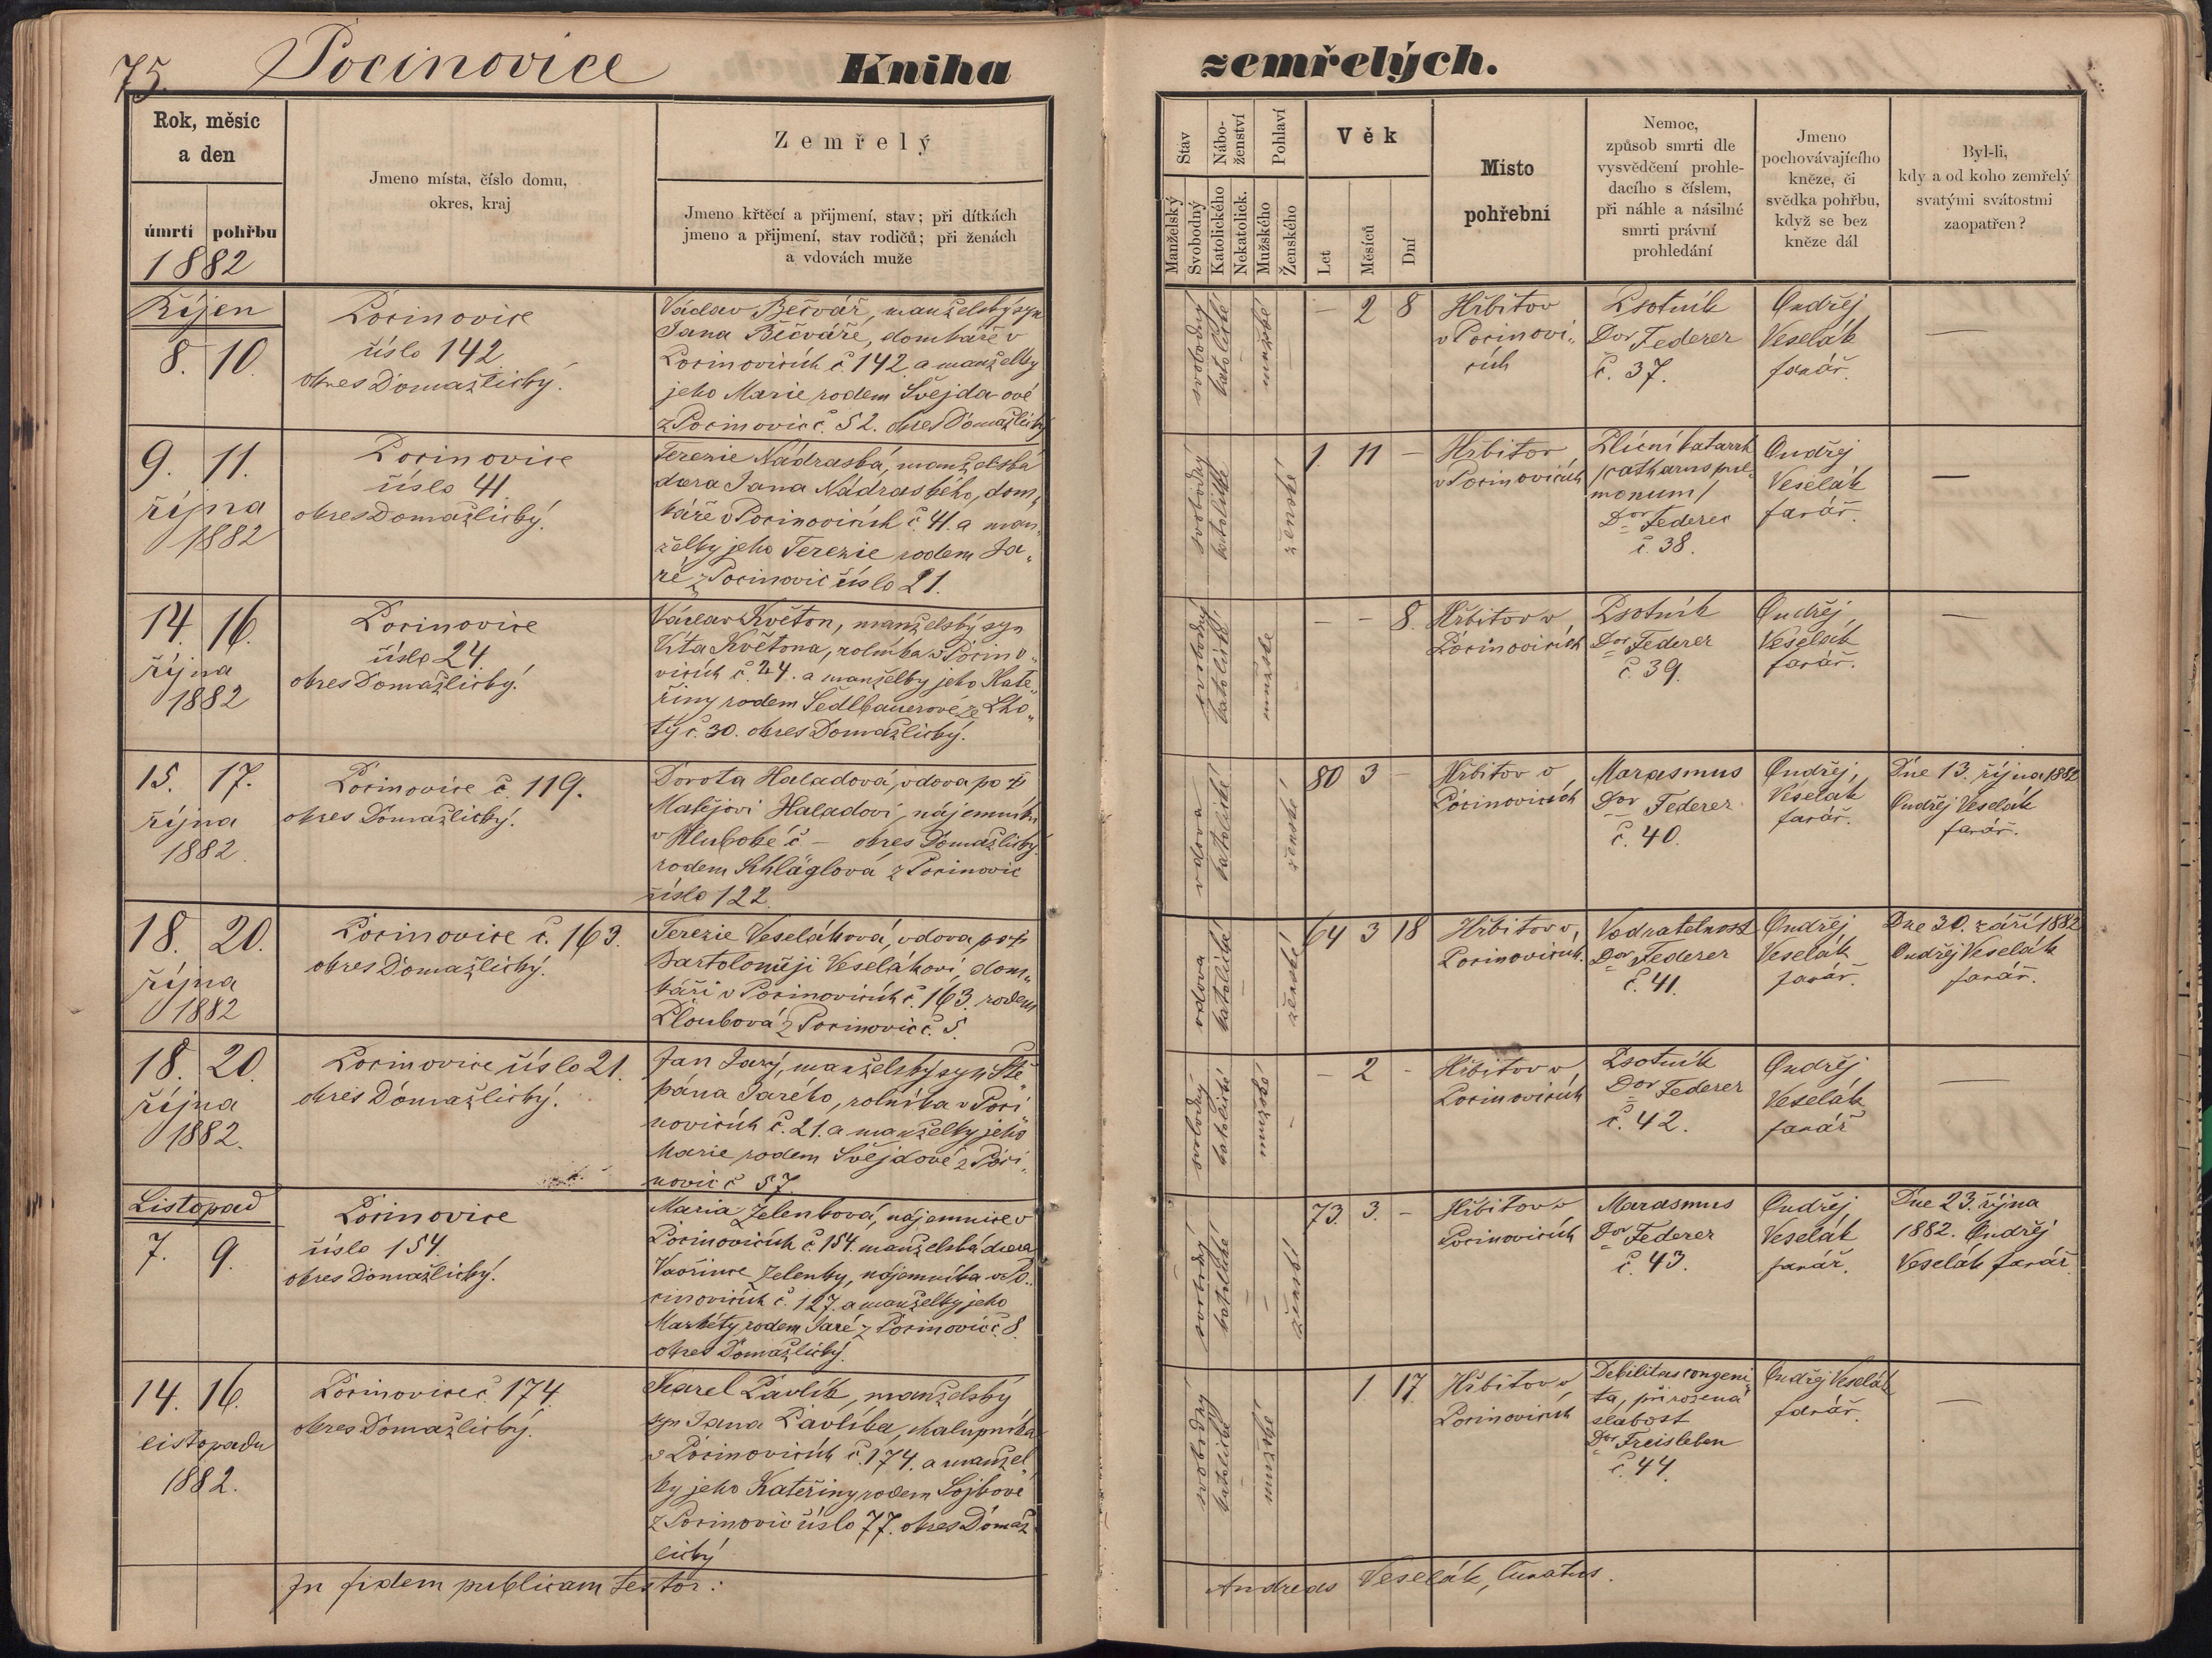 75.
Pocinovice
Kniha
zemřelých.
Rok, měsíc
a den
úmrtí
pohřbu
1882
Jmeno místa, číslo domu,
okres, kraj
Zemřelý
Jmeno křtěcí a přijmení, stav; při dítkách
jmeno a přijmení, stav rodičů; při ženách
a vdovách muže
Stav
Nábo-
ženství
Pohlaví
Věk
Manželský
Svobodný
Katolického
Nekatolick.
Mužského
Ženského
Let
Měsíců
Dní
Místo
pohřební
Nemoc,
způsob smrti dle
vysvědčení prohle-
dacího s číslem,
při náhle a násilné
smrti právní
prohledání
Jmeno
pochovávajícího
kněze, či
svědka pohřbu,
když se bez
kněze dál
Byl-li,
kdy a od koho zemřelý
svatými svátostmi
zaopatřen?
Říjen
8. 10.
Pocinovice
číslo 142
okres Domažlický.
Václav Bečvář, manželský syn
Jana Bečváře, domkáře v
Pocinovicích č. 142 a manželky
jeho Marie rodem Švejdaové
z Pocinovic č. 52. okres Domažlický
svobodný
katolické
mužské
— 2 8
Hřbitov
v Pocinovi„
cích
Psotník
Dor Federer
č. 37.
Ondřej
Veselák
farář.
—
9. 11.
října
1882
Pocinovice
číslo 41
okres Domažlický.
Terezie Nádraská, manželská
dcera Jana Nádraského, dom„
káře v Pocinovicích č. 41. a man„
želky jeho Terezie rodem Ja„
ré z Pocinovic číslo 21.
svobodný
katolické
ženské
1. 11 —
Hřbitov
v Pocinovicích
Plicní katarrh
/catharus pul-
monum/
Dor Federer
č. 38.
Ondřej
Veselák
farář.
—
14. 16.
října
1882
Pocinovice
číslo 24.
okres Domažlický.
Václav Květon, manželský syn
Víta Květona, rolníka v Pocino„
vicích č. 24. a manželky jeho Kate„
řiny rodem Sedlbauerové ze Lho„
ty č. 30. okres Domažlický.
svobodný
katolické
mužské
— — 8.
Hřbitov v
Pocinovicích
Psotník
Dor Federer
č. 39.
Ondřej
Veselák
farář.
—
15. 17.
října
1882
Pocinovice č. 119.
okres Domažlický.
Dorota Haladová, vdova po †
Matějovi Haladovi, nájemníku
v Hluboké č — okres Domažlický.
rodem Schläglová z Pocinovic
číslo 122.
vdova
katolické
ženské
80 3 —
Hřbitov v
Pocinovicích
Marasmus
Dor Federer
č. 40.
Ondřej
Veselák
farář.
Dne 13. října 1882
Ondřej Veselák
farář.
18. 20.
října
1882
Pocinovice č. 163.
okres Domažlický.
Terezie Veseláková, vdova po †
Bartoloměji Veselákovi, dom„
káři v Pocinovicích č. 163. rodem
Ploubová z Pocinovic č. 5.
vdova
katolické
ženské
64 3 18
Hřbitov v
Pocinovicích.
Vodnatelnost
Dor Federer
č. 41.
Ondřej
Veselák
farář.
Dne 30. září 1882
Ondřej Veselák
farář.
18. 20.
října
1882.
Pocinovice číslo 21.
okres Domažlický.
Jan Jarý, manželský syn Ště„
pána Jarého, rolníka v Poci„
novicích č. 21. a manželky jeho
Marie rodem Švejdové z Poci„
novic č 57.
svobodný
katolické
mužské
— 2 -
Hřbitov v
Pocinovicích
Psotník
Dor Federer
č. 42.
Ondřej
Veselák
farář
—
Listopad
7. 9.
Pocinovice
číslo 154.
okres Domažlický.
Maria Zelenková, nájemnice v
Pocinovicích č. 154. manželská dcera
Vavřince Zelenky, nájemníka v Po„
cinovicích č. 127. a manželky jeho
Markéty rodem Jaré z Pocinovic č. 8.
okres Domažlický.
svobodný
katolické
ženské
73. 3. -
Hřbitov v
Pocinovicích
Marasmus
Dor Federer
č. 43.
Ondřej
Veselák
farář.
Dne 23. října
1882. Ondřej
Veselák farář.
14. 16.
listopadu
1882.
Pocinovice č. 174.
okres Domažlický.
Karel Pavlík, manželský
syn Jana Pavlíka, chalupníka
v Pocinovicích č. 174. a manžel„
ky jeho Kateřiny rodem Sojkové
z Pocinovic číslo 77. okres Domaž„
lický
svobodný
katolické
mužské
1. 17
Hřbitov v
Pocinovicích
Debilitas congeni„
ta, přirozená
slabost
Dor Freisleben
č. 44.
Ondřej Veselák
farář.
—
In fidem publicam testor:
Andreas Veselák, Curatus.